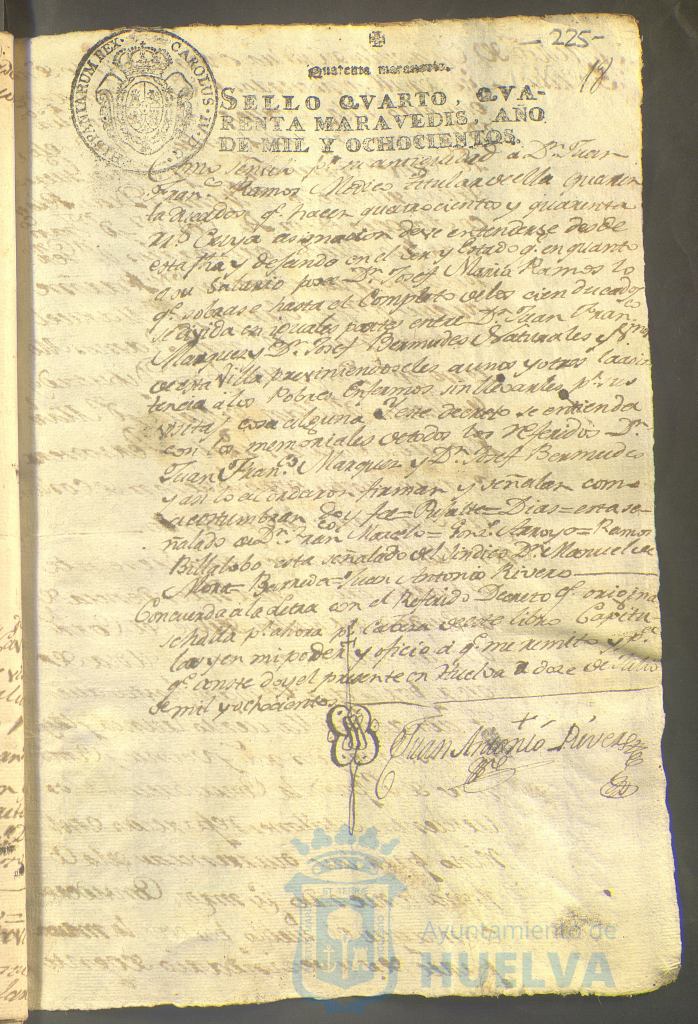 -225-
18
HISPANIARUM REX. CAROLUS IV D. G.
Quarenta maravedis.
SELLO QVARTO, QVA-
RENTA MARAVEDIS, AÑO
DE MIL Y OCHOCIENTOS.
antiguedad a Dn. Juan
Franco. Ramos Medico titular de ella quaren
ta ducados q. hacen quatrocientos y quarenta
rs. Cuya asignacion deve entenderse desde
esta fha y desiendo en el ser y estado q. en quanto
a su Salario por Dn. Josef Maria Ramos lo
q. sobrase hasta el Completo de los cien ducados
se divida en iguales partes entre Dn. Juan Franco
Marquez y Dn. Josef Bermudes Naturales y
de esta Villa previniendoseles a unos y otros la asis
tencia a los Pobres Enfermos sin llevarles pr. su
visita cosa alguna. Y este decreto se entienda
con los memoriales de todos los referidos Dn.
Juan Franco. Marquez y Dn. Josef Bermudes
y asi lo acordaron firmar y señalar como
acostumbran doy fee = Dias = esta se-
ñalado de Dn. Franco Marcelo = Arroyo = Ramos
Billalobo esta señalado del Sindico Dn. Manuel de
Mora = Bermuda = Juan Antonio Rivero
Concuerda a la letra con el Referido Decreto q. original
se halla pr. ahora pr. Cabeza de este libro Capitu
lar y en mi poder y oficio a q. me remito y pa.
q. conste doy el presente en Huelva a doze de Julio
de mil y ochocientos
Juan Antonio Rivero
Ayuntamiento de
HUELVA